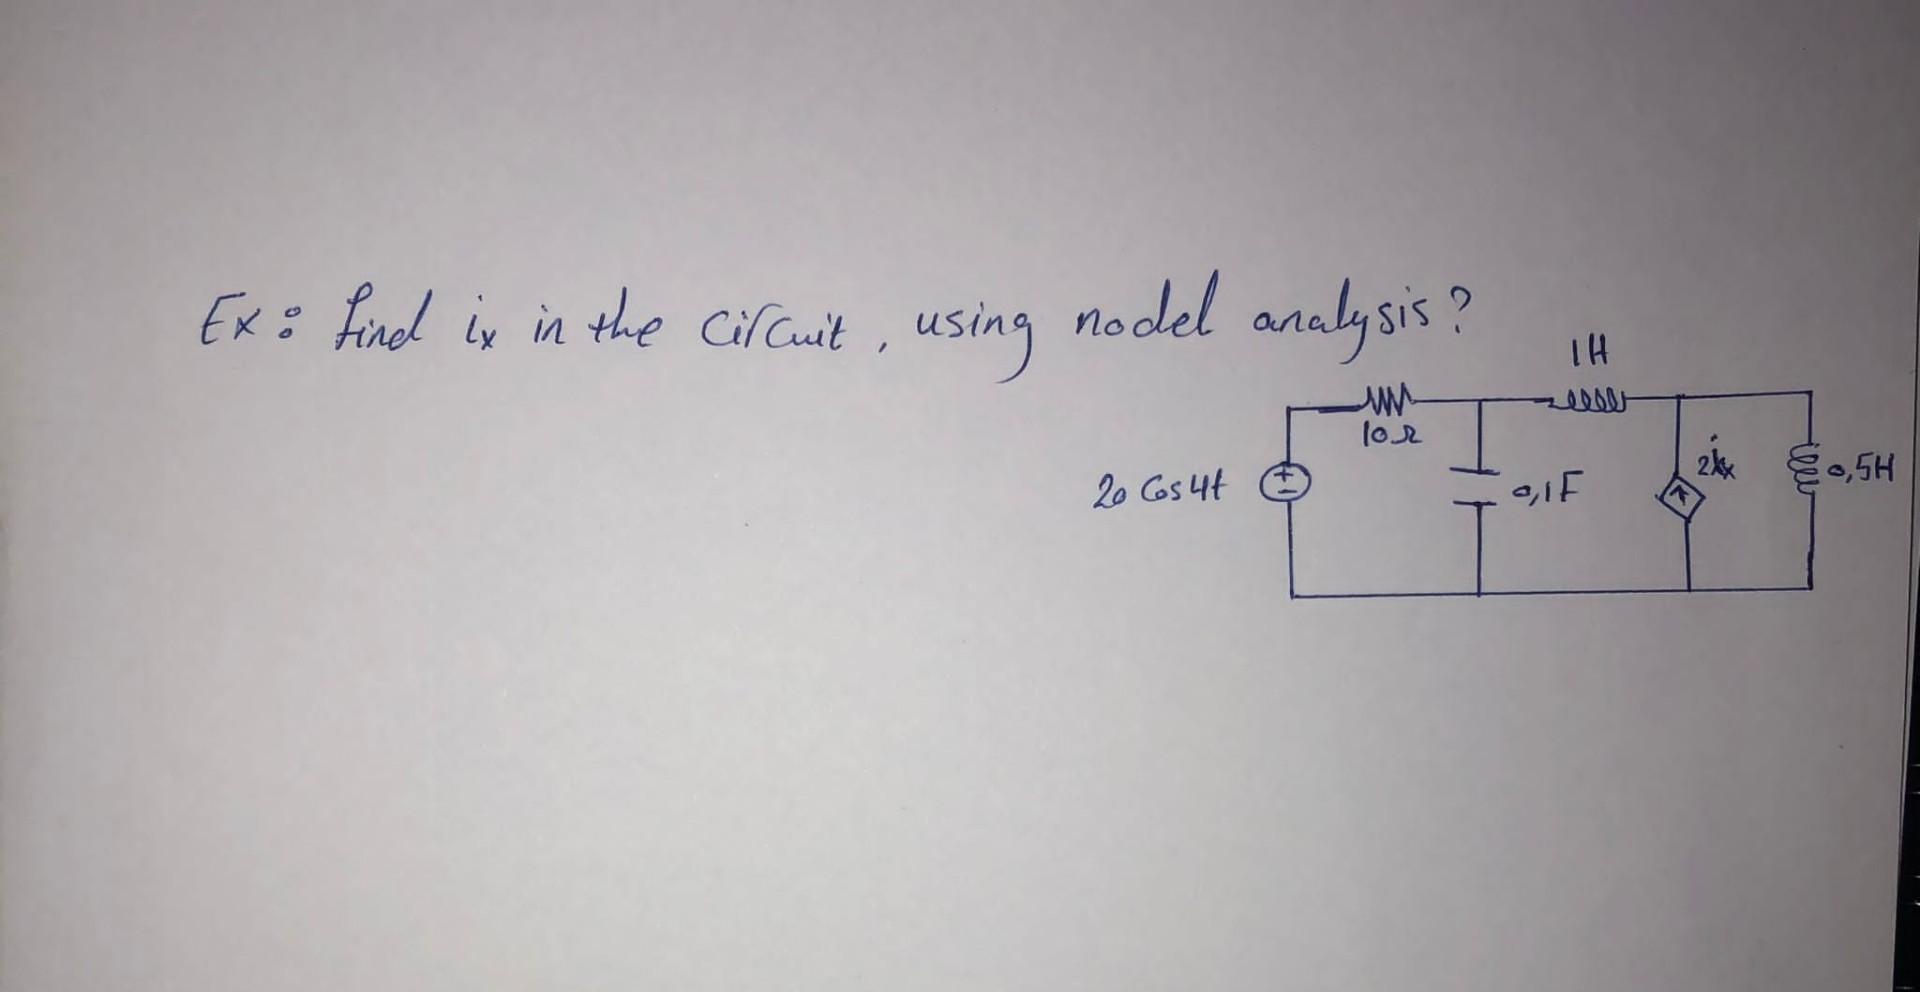 Ex: find ix in the circuit, using nodel analysis?
1H
10Ω
20 Cos4t
+
-
0,1F
2ix
0,5H